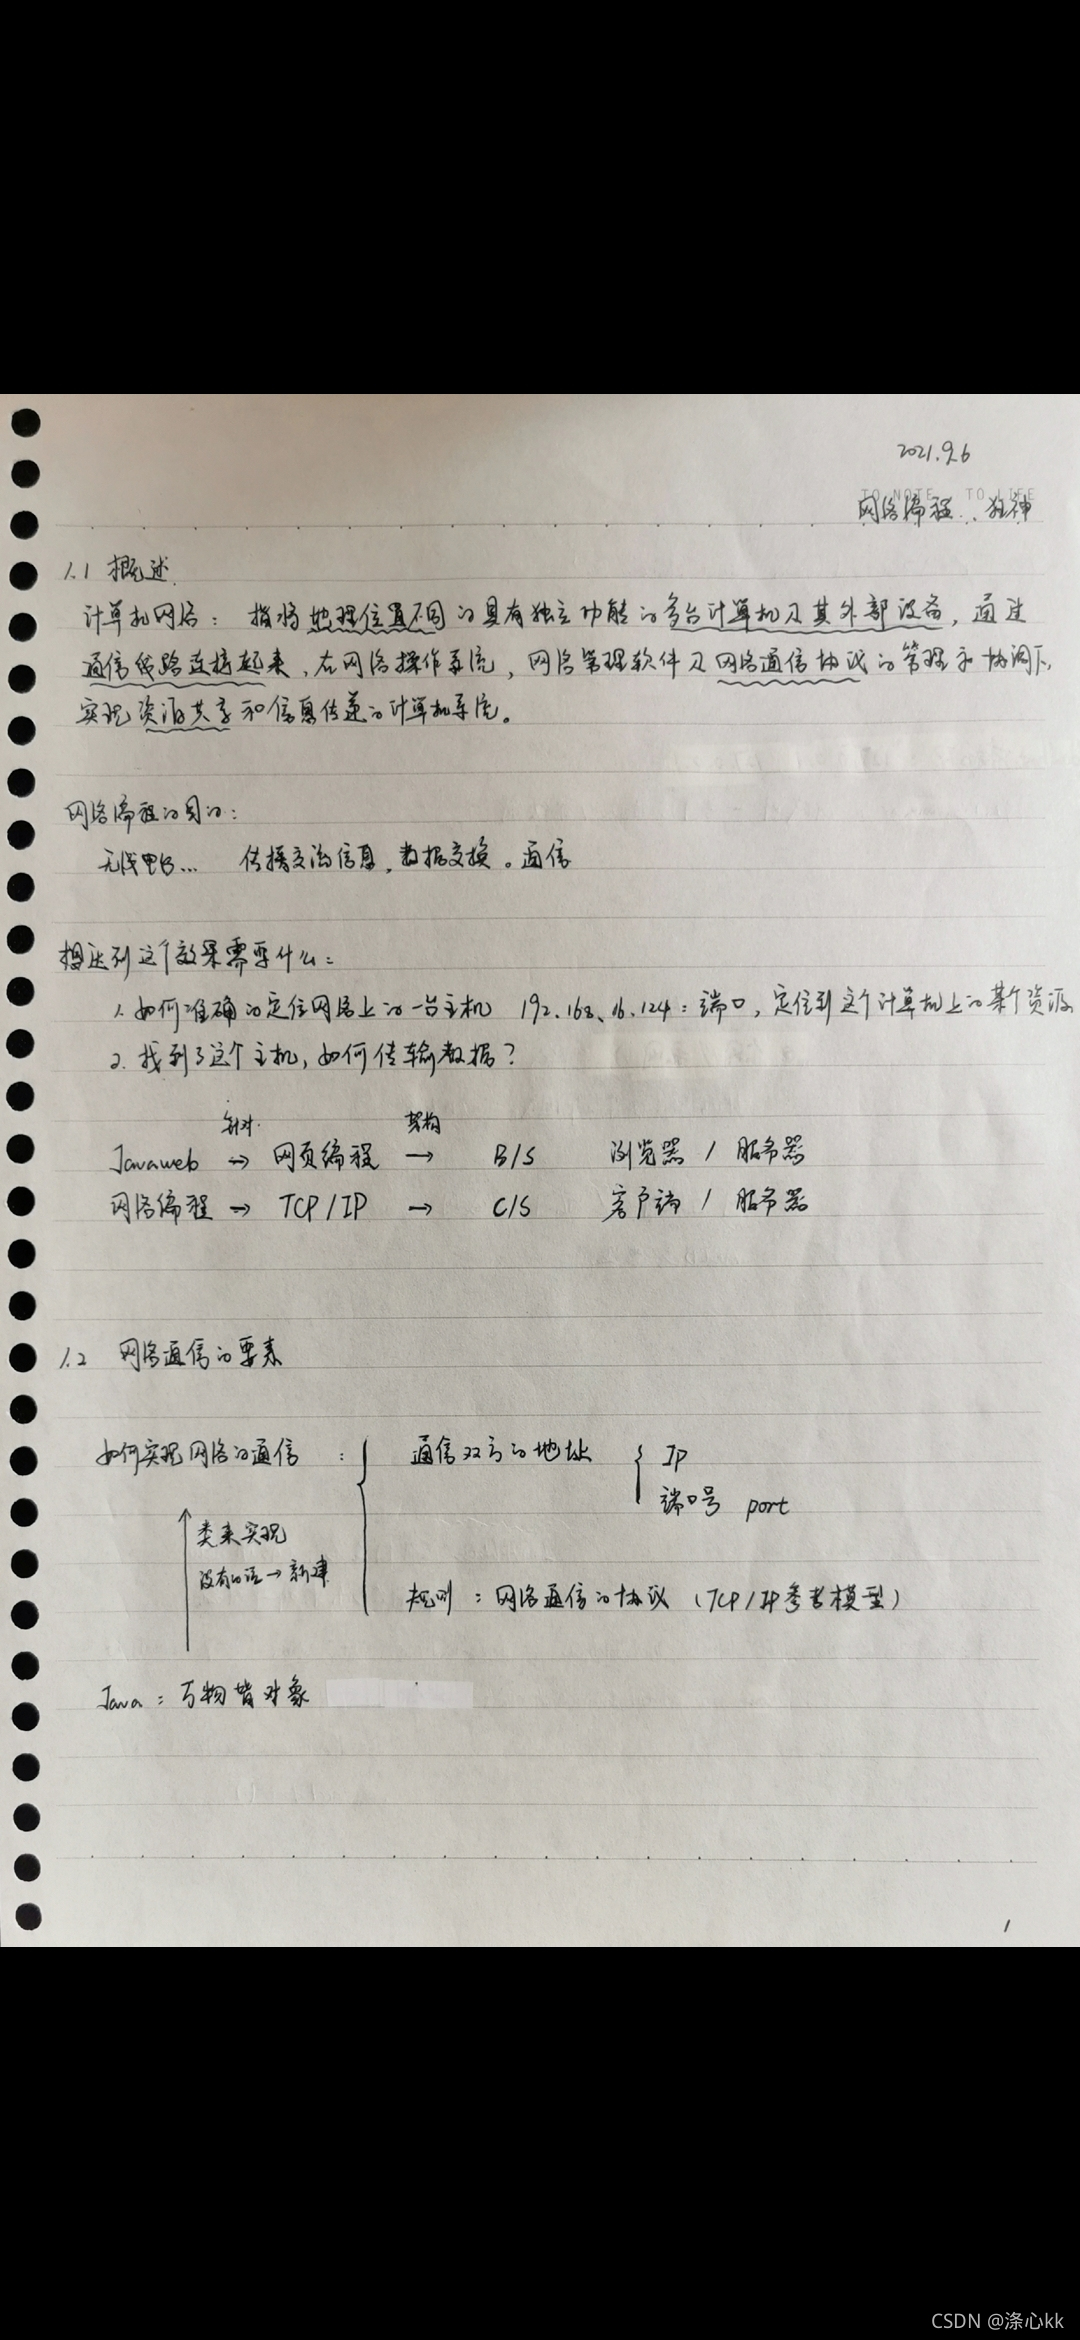 2021.9.6
TO NOTE TO LIFE
网络编程 . . 狂神
1.1 概述
计算机网络：指将地理位置不同的具有独立功能的多台计算机及其外部设备，通过
通信线路连接起来，在网络操作系统，网络管理软件及网络通信协议的管理和协调下，
实现资源共享和信息传递的计算机系统。
网络编程的目的：
无线电台… 传播交流信息，数据交换。通信
想达到这个效果需要什么：
1. 如何准确的定位网络上的一台主机 192.168.16.124：端口，定位到这个计算机上的某个资源
2. 找到了这个主机，如何传输数据？
针对 架构
Javaweb → 网页编程 → B/S 浏览器 / 服务器
网络编程 → TCP/IP → C/S 客户端 / 服务器
1.2 网络通信的要素
如何实现网络的通信： 通信双方的地址 IP
端口号 port
类来实现
没有的话→新建
规则：网络通信的协议（TCP/IP参考模型）
Java：万物皆对象
1
CSDN @涤心kk